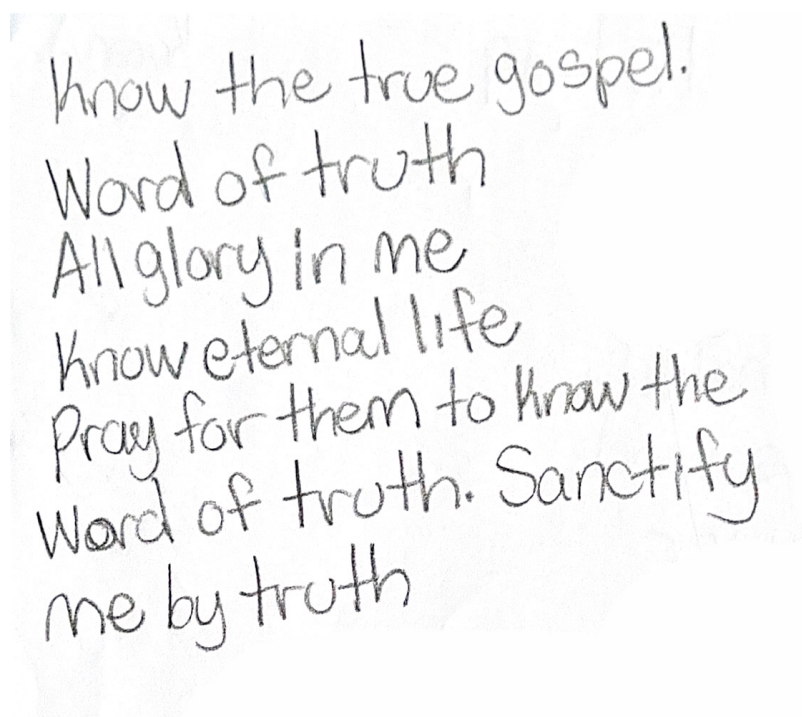 Know the true gospel.
Word of truth
All glory in me
Know eternal life
Pray for them to know the
Word of truth. Sanctify
me by truth